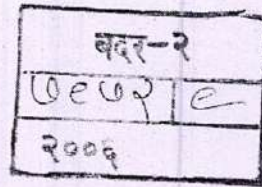 बदर-२
७९७२ | ९
२००६